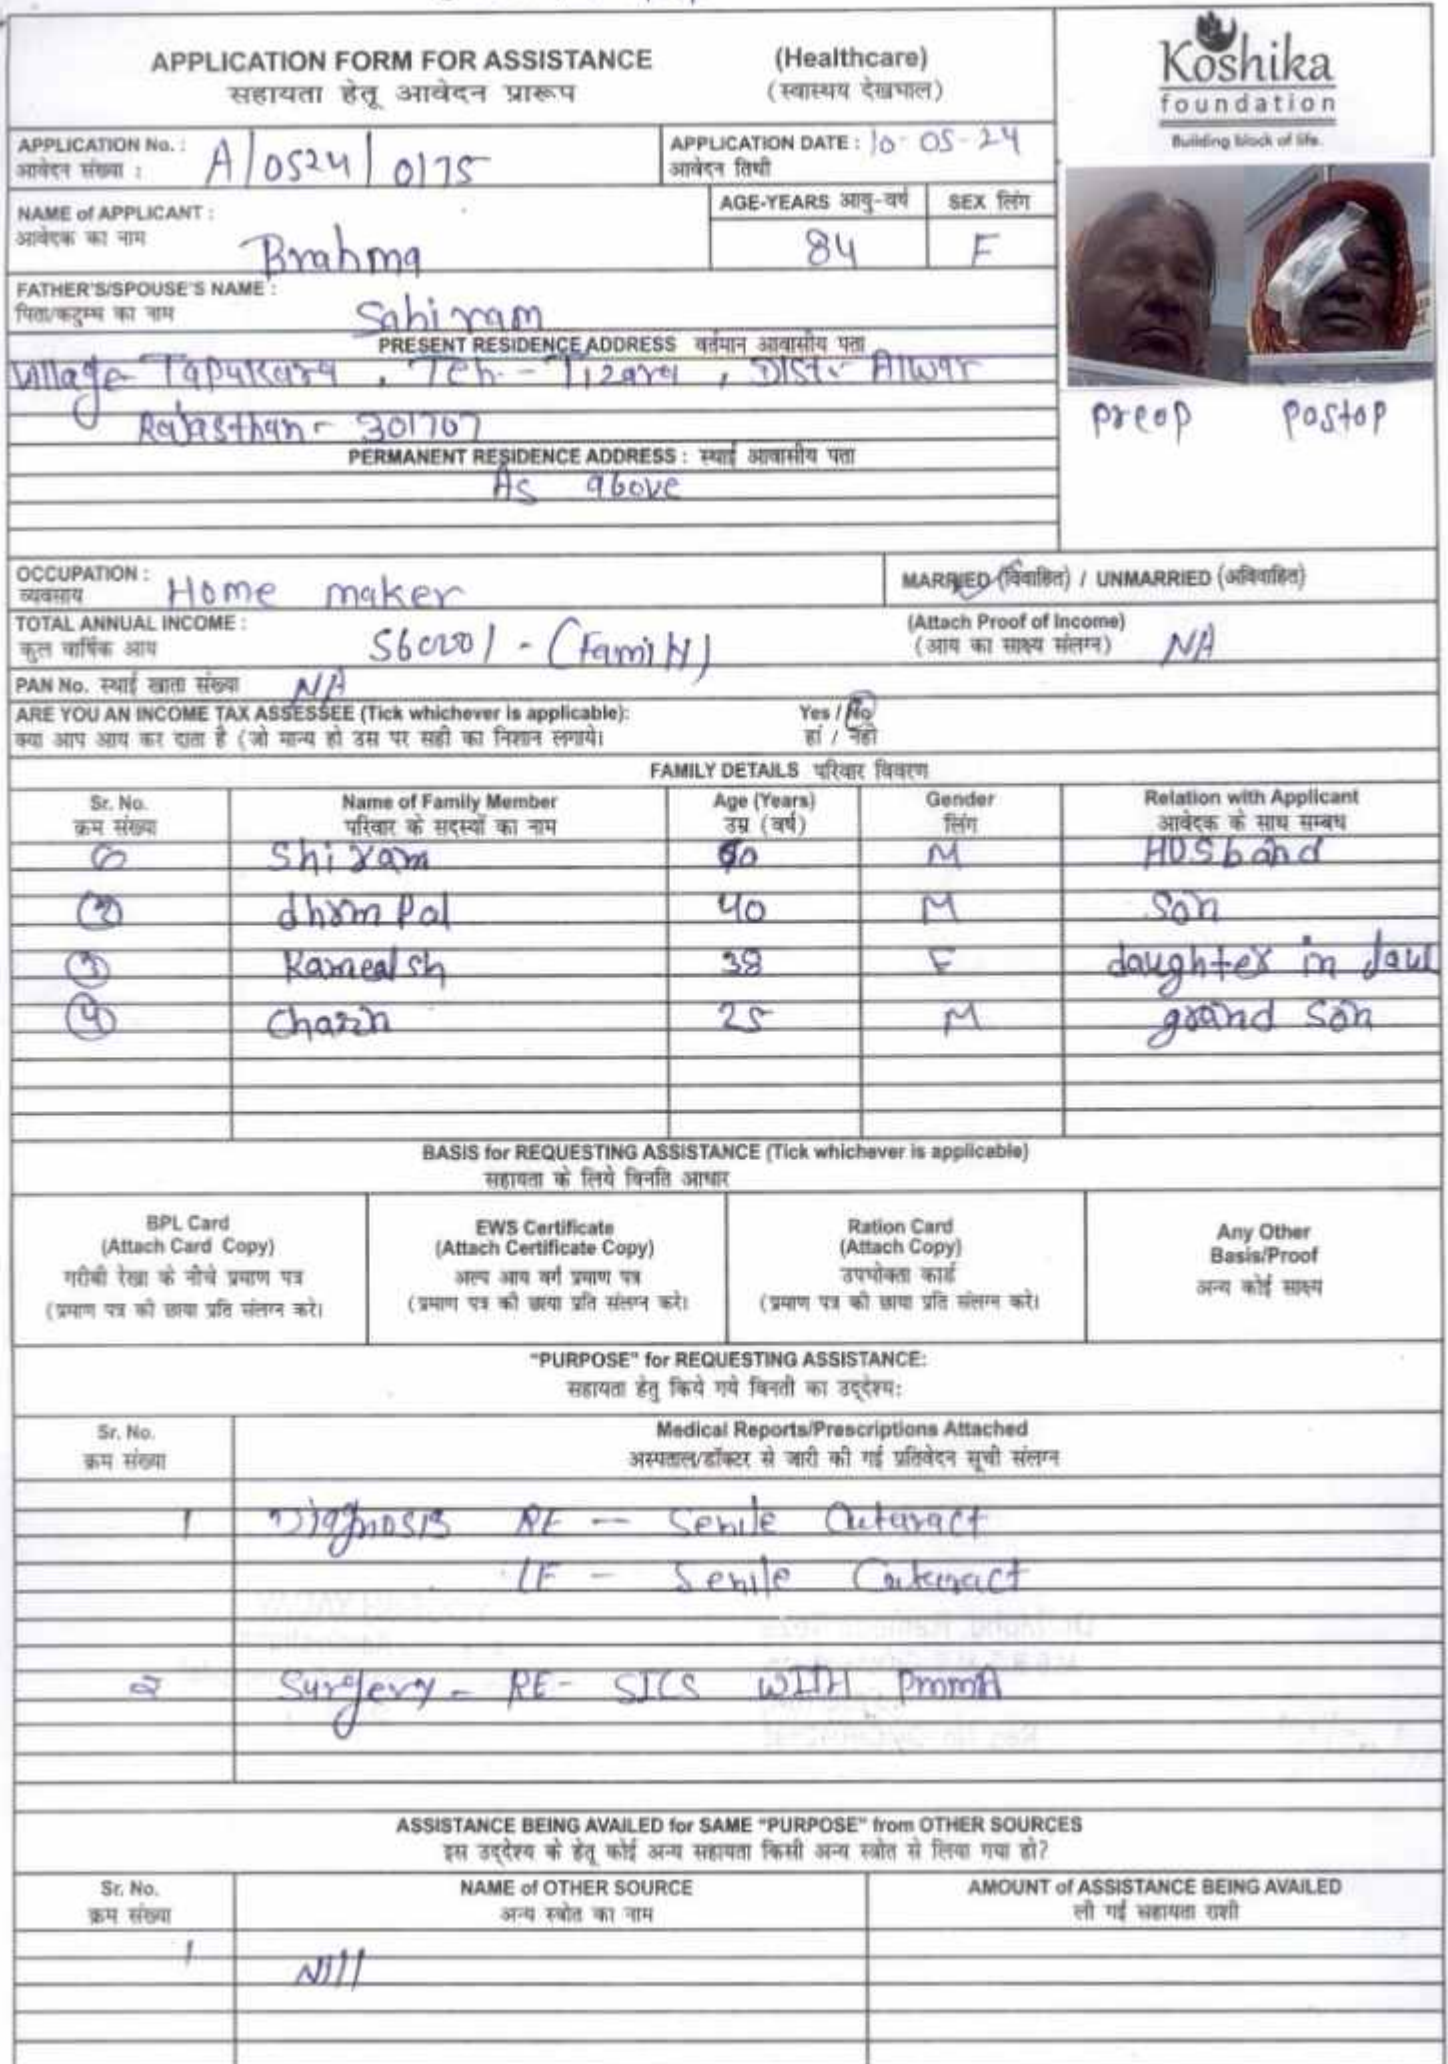 APPLICATION FORM FOR ASSISTANCE (Healthcare)
सहायता हेतू आवेदन प्रारूप (स्वास्थय देखभाल)
Koshika
foundation
Building block of life.
APPLICATION No. : A/0524/0175
आवेदन संख्या :
APPLICATION DATE : 10-05-24
आवेदन तिथी
NAME of APPLICANT : Brahma
आवेदक का नाम
AGE-YEARS आयु-वर्ष
84
SEX लिंग
F
FATHER'S/SPOUSE'S NAME : Sahiram
पिता/कटुम्ब का नाम
PRESENT RESIDENCE ADDRESS वर्तमान आवासीय पता
Village Tapukara, Teh - Tizara, Distt Alwar
Rajasthan - 301707
preop postop
PERMANENT RESIDENCE ADDRESS : स्थाई आवासीय पता
As above
OCCUPATION : Home maker
व्यवसाय
MARRIED (विवाहित) / UNMARRIED (अविवाहित)
TOTAL ANNUAL INCOME : (Family)
कुल वार्षिक आय
(Attach Proof of Income) NA
(आय का साक्ष्य संलग्न)
PAN No. स्थाई खाता संख्या NA
ARE YOU AN INCOME TAX ASSESSEE (Tick whichever is applicable): Yes / No
क्या आप आय कर दाता है (जो मान्य हो उस पर सही का निशान लगाये। हां / नही
FAMILY DETAILS परिवार विवरण
Sr. No. Name of Family Member Age (Years) Gender Relation with Applicant
क्रम संख्या परिवार के सदस्यों का नाम उम्र (वर्ष) लिंग आवेदक के साथ सम्बध
Shiram M Husband
2 dhrm Pal 40 M Son
3 Kamealsh 38 F daughter in law
4 25 M grand son
BASIS for REQUESTING ASSISTANCE (Tick whichever is applicable)
सहायता के लिये विनति आधार
BPL Card
(Attach Card Copy)
गरीबी रेखा के नीचे प्रमाण पत्र
(प्रमाण पत्र की छाया प्रति संलग्न करे।
EWS Certificate
(Attach Certificate Copy)
अल्प आय वर्ग प्रमाण पत्र
(प्रमाण पत्र की छाया प्रति संलग्न करे।
Ration Card
(Attach Copy)
उपभोक्ता कार्ड
(प्रमाण पत्र की छाया प्रति संलग्न करे।
Any Other
Basis/Proof
अन्य कोई साक्ष्य
"PURPOSE" for REQUESTING ASSISTANCE:
सहायता हेतु किये गये विनती का उद्देश्य:
Sr. No. Medical Reports/Prescriptions Attached
क्रम संख्या अस्पताल/डॉक्टर से जारी की गई प्रतिवेदन सूची संलग्न
1 Diagnosis RE - Senile Cataract
LE - Senile Cataract
2 Surgery - RE - SICS WITH PMMA
ASSISTANCE BEING AVAILED for SAME "PURPOSE" from OTHER SOURCES
इस उद्देश्य के हेतू कोई अन्य सहायता किसी अन्य स्त्रोत से लिया गया हो?
Sr. No. NAME of OTHER SOURCE AMOUNT of ASSISTANCE BEING AVAILED
क्रम संख्या अन्य स्त्रोत का नाम ली गई सहायता राशी
1 Nill